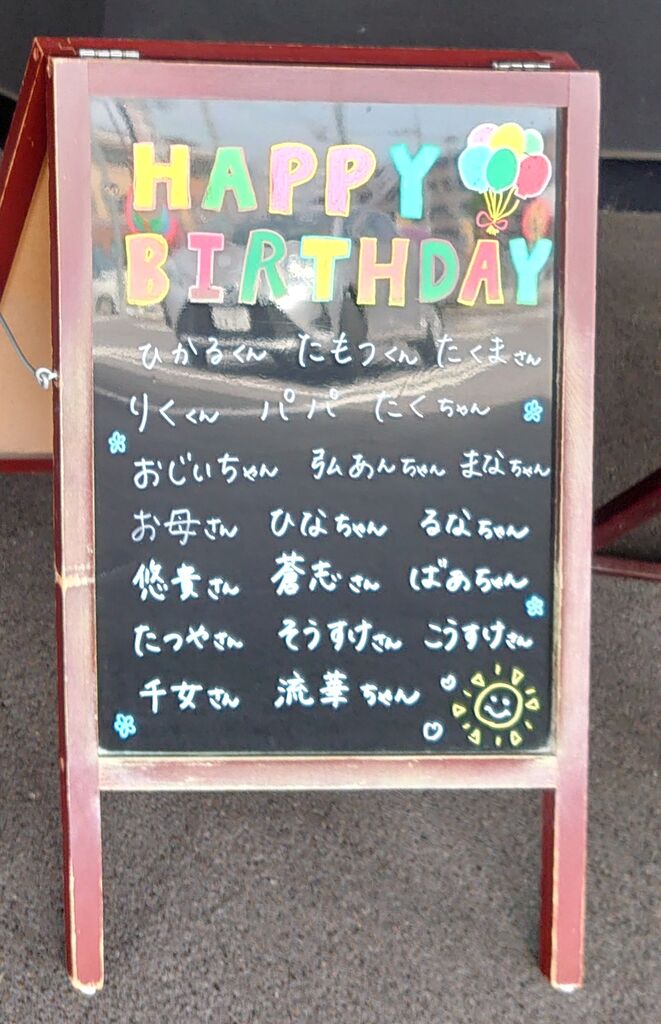 HAPPY
BIRTHDAY
ひかるくん たもつくん たくまさん
りくくん パパ たくちゃん
おじいちゃん 弘あんちゃん まなちゃん
お母さん ひなちゃん るなちゃん
悠貴さん 蒼志さん ばあちゃん
たつやさん そうすけさん こうすけさん
千女さん 流華ちゃん